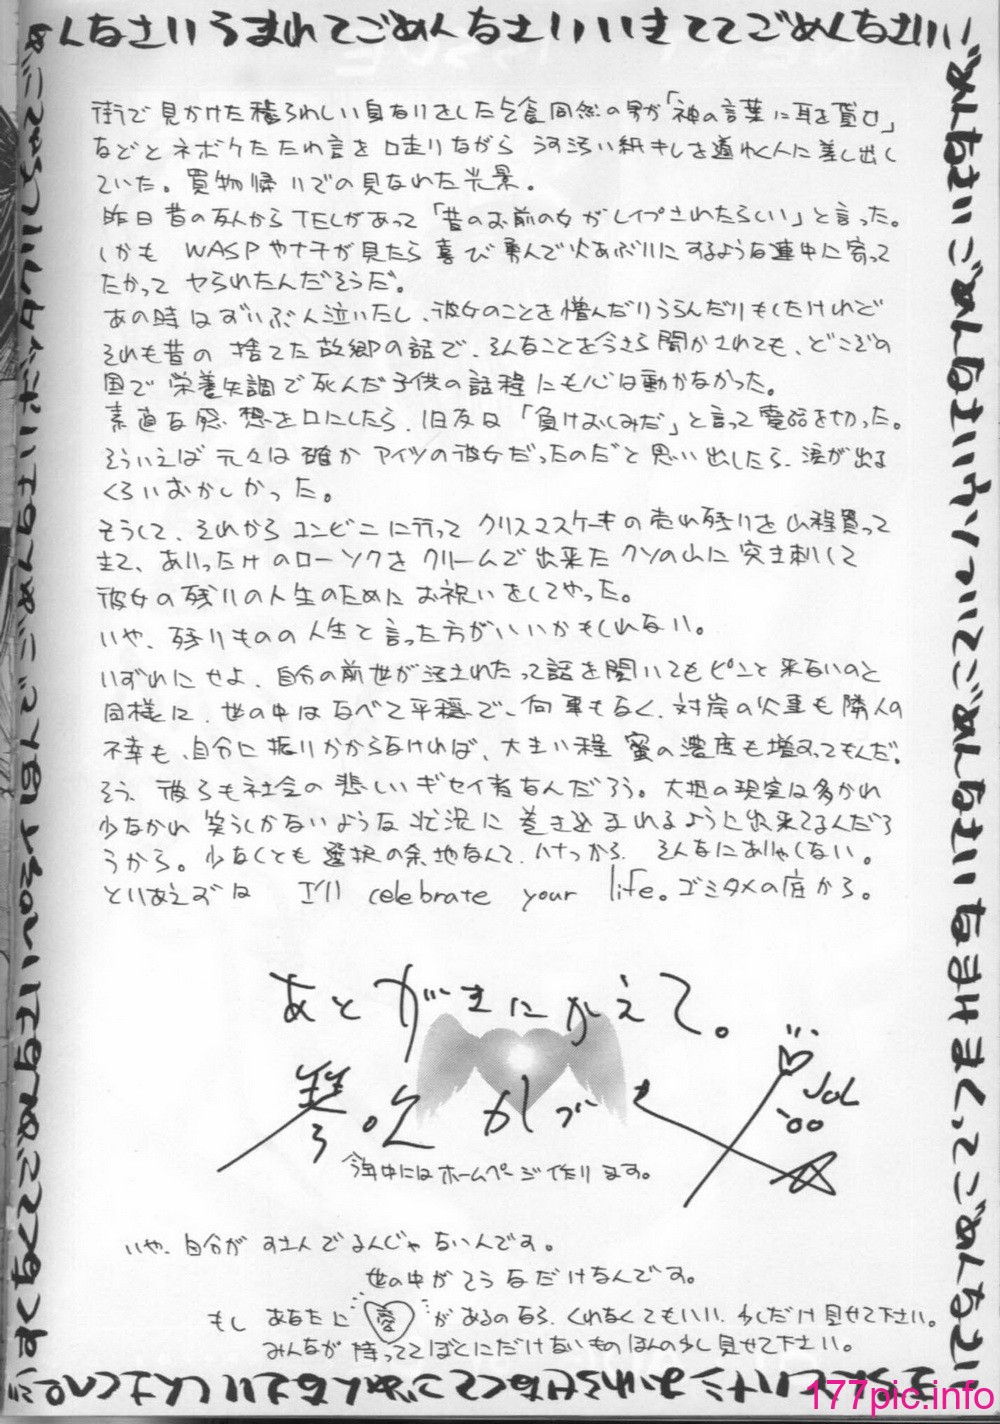 んなさいうまれてごめんなさいいいきててごめんなさいいい
街で見かけた穢らわしい身なりをした乞食同然の男が「神の言葉に耳を貸せ」
などとネボケたたわ言を口走りながら うす汚い紙キレを道ゆく人に差し出し
ていた。買物帰りでの見なれた光景。
昨日昔の友人からTELがあって「昔のお前の女がレイプされたらしい」と言った。
しかも WASPやナチが見たら喜び勇んで火あぶりにするような連中に寄って
たかって ヤられたんだそうだ。
あの時はずいぶん泣いたし、彼女のことを憎んだりうらんだりもしたけれど
それも昔の 捨てた故郷の話で、そんなことを今さら聞かされても、どこぞの
国で栄養失調で死んだ子供の話程にも心は動かなかった。
素直な感想を口にしたら、旧友は「負けおしみだ」と言って電話を切った。
そういえば元々は確かアイツの彼女だったのだと思い出したら、涙が出る
くらいおかしかった。
そうして、それからコンビニに行ってクリスマスケーキの売れ残りを山程買って
きて、ありったけのローソクをクリームで出来たクソの山に突き刺して
彼女の残りの人生のためにお祝いをしてやった。
いや、残りものの人生と言った方がいいかもしれない。
いずれにせよ、自分の前世が汚されたって話を聞いてもピンと来ないのと
同様に、世の中はなべて平穏で、何事もなく、対岸の火事も隣人の
不幸も、自分に振りかからなければ、大きい程蜜の濃度も増すってもんだ。
そう、彼らも社会の悲しいギセイ者なんだろう。大抵の現実は多かれ
少なかれ笑うしかないような状況に巻き込まれるように出来てるんだろ
うから。少なくとも選択の余地なんて、ハナっから、そんなにありゃしない。
とりあえずは I'll celebrate your life。ゴミタメの底から。
あとがきにかえて。
琴吹かづき
JOL
'00
今年中にはホームページ作ります。
いや、自分がすさんでるんじゃないんです。
世の中がそうなだけなんです。
もし あなたに愛があるのなら、くれなくてもいい、少しだけ見せて下さい。
みんなが持っててぼくにだけないものほんの少し見せて下さい。
177pic.info